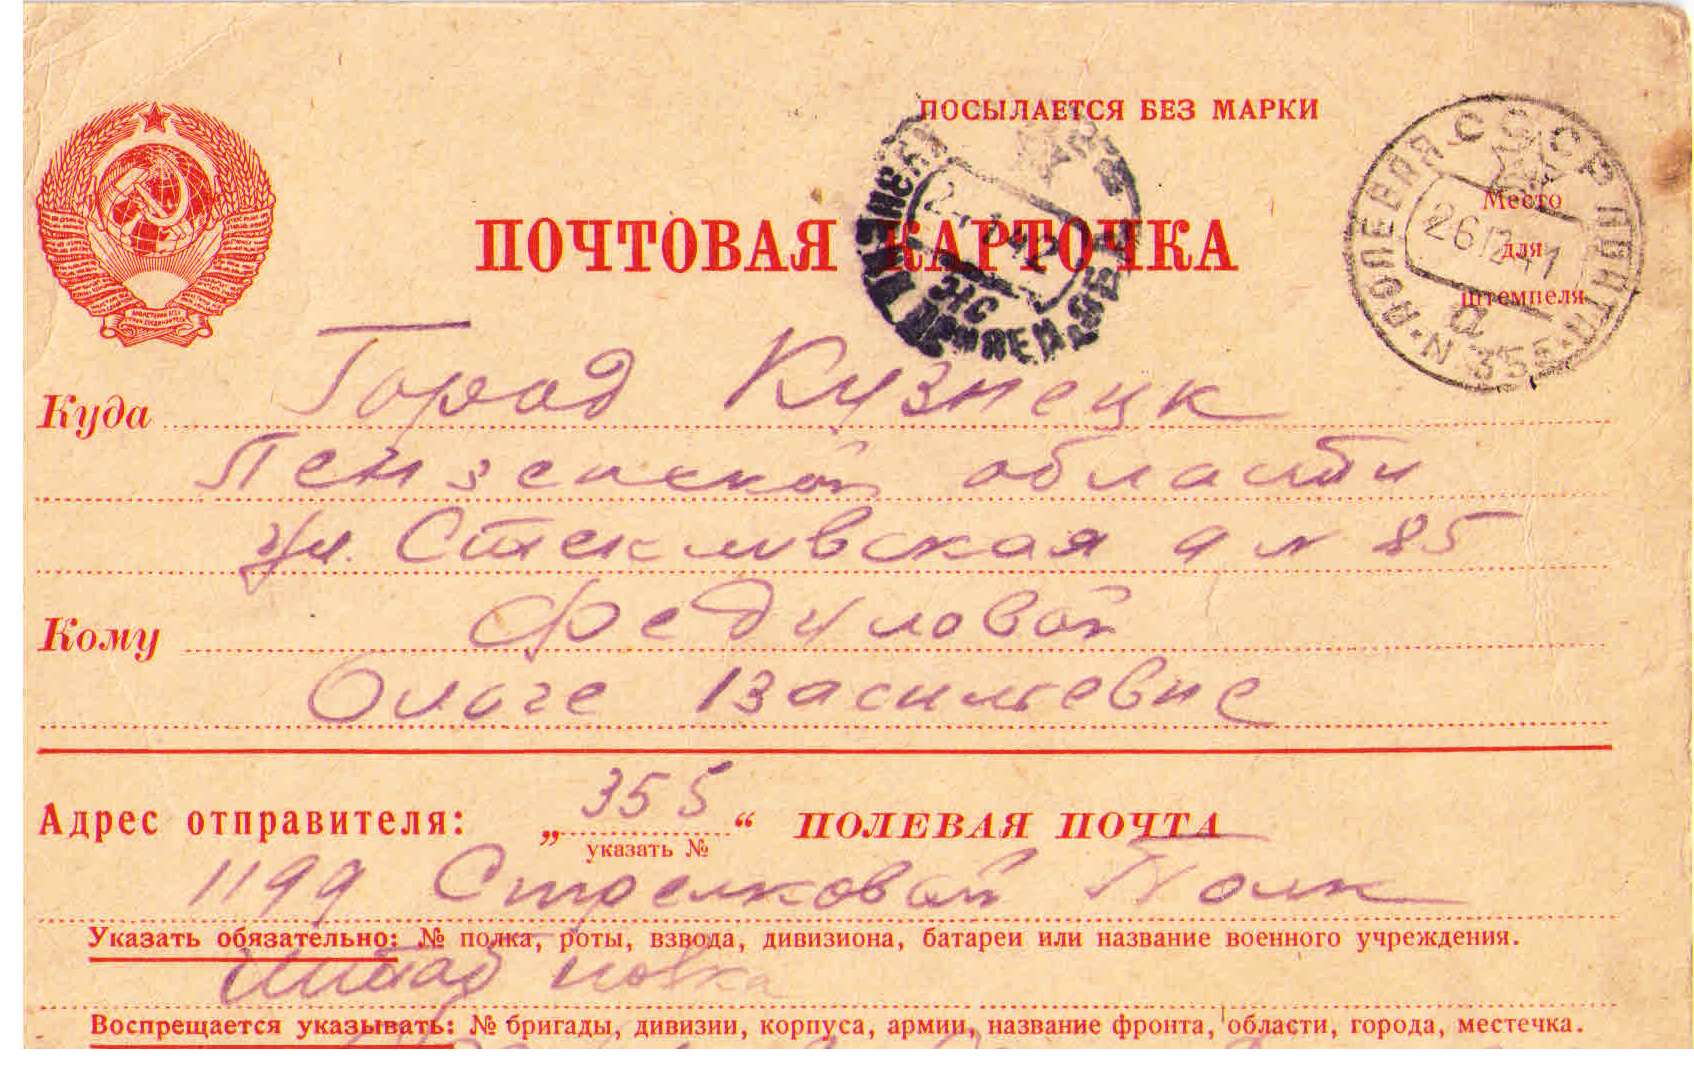 ПОСЫЛАЕТСЯ БЕЗ МАРКИ
ПОЧТОВАЯ КАРТОЧКА
СССР ПОЛЕВАЯ ПОЧТА N 355
26 12 41
а
Место
для
штемпеля
Куда Город Кузнецк
Пензенской области
ул. Стекловская д № 85
Кому Федуловой
Ольге Васильевне
Адрес отправителя: „355“ ПОЛЕВАЯ ПОЧТА
указать №
1199 Стрелковой Полк
Указать обязательно: № полка, роты, взвода, дивизиона, батареи или название военного учреждения.
Штаб полка
Воспрещается указывать: № бригады, дивизии, корпуса, армии, название фронта, области, города, местечка.